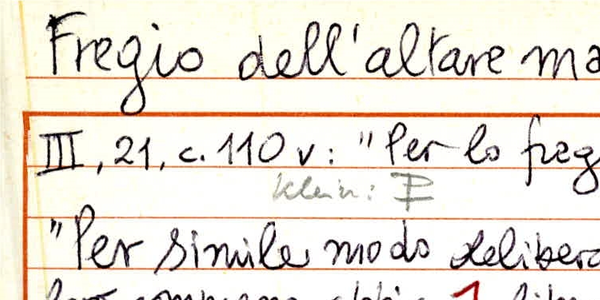 Fregio dell'altare ma
III, 21, c. 110 v: "Per lo freg
Klein: F
"Per simile modo delibera